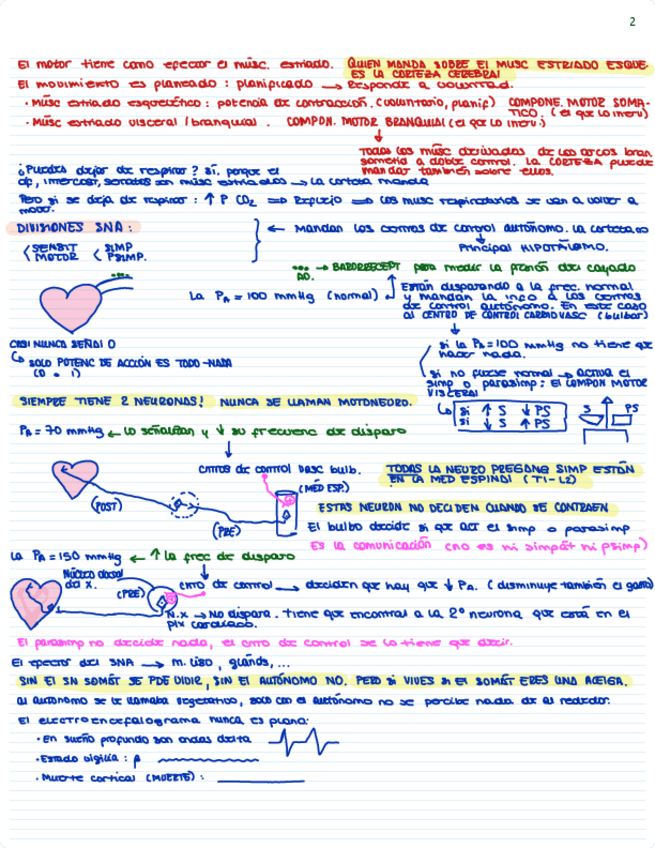 2
El motor tiene como efector el músc. estriado. QUIEN MANDA SOBRE El MUSC ESTRIADO ESQUE-
ES LA CORTEZA CEREBRAl
El movimiento es planeado : planificado → Responde a voluntad.
· Músc estriado esquelético : potencia de contracción. (voluntario, planif) COMPONE. MOTOR SOMA-
TICO. (el que lo inerv)
· Músc estriado visceral / branquial. COMPON. MOTOR BRANQUIAl (el que lo inerv.)
Todos los músc derivados de los arcos bran.
sometid a doble control. La CORTEZA puede
mandar también sobre ellos.
¿Puedes dejar de respirar? Sí, porque el
df, intercost, serratos son músc estriados → La corteza manda
Pero si se deja de respirar : ↑ P CO2 ⇒ Reflejo ⇒ los musc respiratorios se van a volver a
mover.
DIVISIONES SNA :
← Mandan los centros de control autónomo. La corteza no
SENSIT
MOTOR
SIMP
PSIMP.
Principal HIPOTÁLAMO.
→ BARORRECEPT para medir la presión del cayado
AO.
La PA = 100 mmHg (normal)
Están disparando a la frec. normal
y mandan la info a los centros
de control autónomo. En este caso
al CENTRO DE CONTROL CARDIOVASC (bulbar)
CASI NUNCA SEÑAl 0
↳ SOLO POTENC DE ACCIÓN ES TODO-NADA
(0 o 1)
si la PA=100 mmHg no tiene que
hacer nada.
si no fuese normal → activa el
simp o parasimp : El COMPON MOTOR
VISCERAl
SIEMPRE TIENE 2 NEURONAS! NUNCA SE LLAMAN MOTONEURO.
↳ si ↑ S ↓ PS
si ↓ S ↑ PS
S PS
PA = 70 mmHg ← Lo señalizan y ↓ su frecuenc de disparo
centros de control vasc bulb.
(MÉD ESP.)
TODAS LA NEURO PREGANG SIMP ESTÁN
EN LA MED ESPINAl (T1-L2)
(POST)
(PRE)
ESTAS NEURON NO DECIDEN CUANDO SE CONTRAEN
El bulbo decide si que act el simp o parasimp
Es la comunicación (no es ni simpát ni psimp)
La PA = 150 mmHg ← ↑ la frec de disparo
Núcleo dorsal
del X.
(PRE)
cntro de control → deciden que hay que ↓ PA. (disminuye también el gasto)
N.X → No dispara. Tiene que encontrar a la 2º neurona que está en el
plx cardiaco.
El parasimp no decide nada, el cntro de control se lo tiene que decir.
El efector del SNA → m. liso, glánds, ...
SIN El SN SOMÁT SE PDE VIVIR, SIN El AUTÓNOMO NO. PERO Si VIVES sin El SOMÁT ERES UNA ACELGA.
al autonomo se le llamaba vegetativo, solo con el autónomo no se percibe nada de al rededor.
El electroencefalograma nunca es plano:
· En sueño profundo son ondas delta
· Estado vigilia : β
· Muerte cortical (MUERTE) :